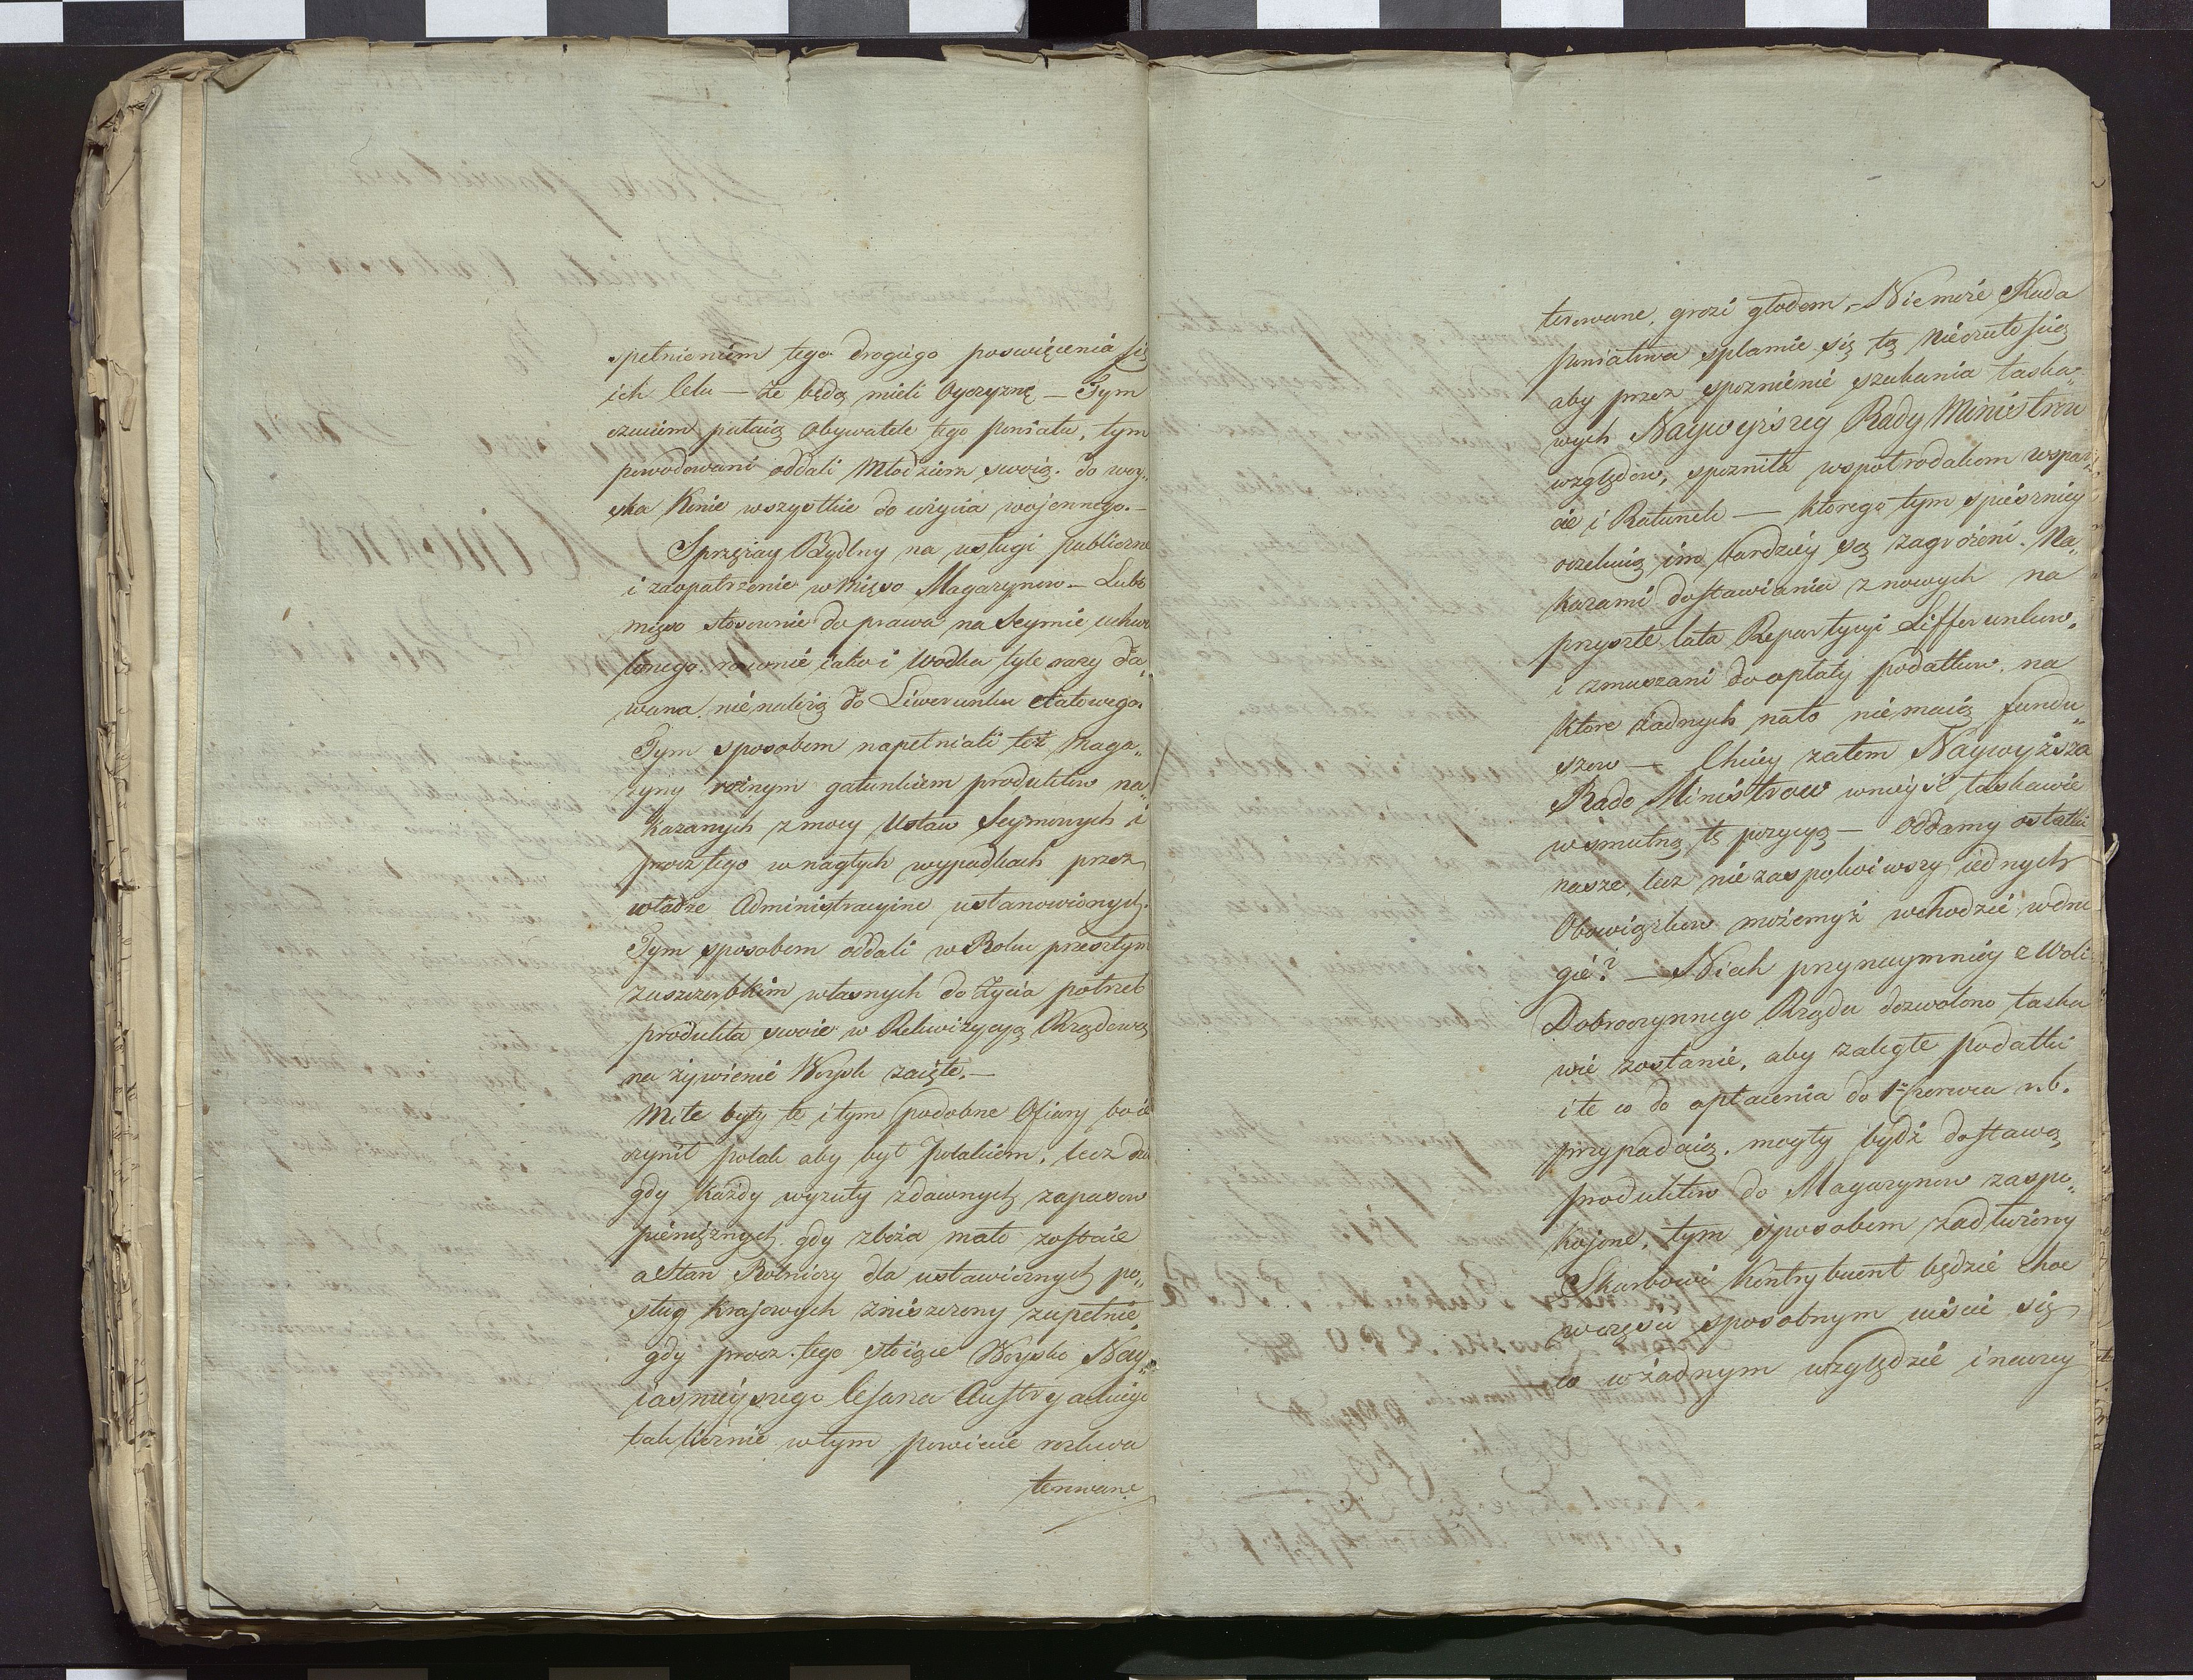 spełnieniem tego drogiego poswięcenia się
ich Celu — że będą mieli Oyczyznę — Tym
czuciem pałaią Obywatele tego powiatu, tym
powodowani oddali Młodzież swoią do woy„
ska Konie wszystkie do użycia wojennego. —
Sprzężay Bydlny na usługi publiczne
i zaopatrzenie w Mięso Magazynow — Lubo
mięso stosownie do prawa na Seymie uchwa
lonego rownie iako i Wodka tyle razy da„
wana nienależą do Liwerunku etatowego.
Tym sposobem napełniali też maga„
zyny rożnym gatunkiem produktow na„
kazanych z mocy Ustaw Seymowych i
procz tego w nagłych wypadkach przez
władze Administracyine ustanowionych.
Tym sposobem oddali w Roku przeszłym
z uszczerbkiem własnych do życia potrzeb
produkta swoie w Rekwizycyą Rządową
na żywienie Woysk zaięte. —
Miłe były te i tym podobne Ofiary bo ie
czynił polak aby był Polakiem, lecz dziś
gdy każdy wyzuty z dawnych zapasow
pieniężnych gdy zboża mało zostaie
a Stan Rolniczy dla ustawicznych po„
sług krajowych zniszczony zupełnie,
gdy procz tego stoiące Woysko Nay„
iasnieyszego Cesarza Austryackiego
tak licznie w tym powiecie rozkwa
terowane
terowane, grozi głodem, — Niemoże Rada
powiatowa splamić się tą nieczułością
aby przez spoznienie szukania łaska„
wych Naywyższey Rady Ministrow
względow, spozniła wspołrodakom wspar„
cie i Ratunek — ktorego tym spieszniey
oczekuią im bardziey są zagrożeni. Na„
kazami dostawiania z nowych na
przyszłe lata Repartycyi Lifferunkow,
i zmuszani do opłaty podatkow na
ktore żadnych nato niemaią fundu„
szow — Chciey zatem Naywyższa
Rado Ministrow wniyść łaskawie
w smutną tę pozycyą — oddamy ostatki
nasze, lecz niezaspokoiwszy iednych
Obowiązkow możemyż wchodzić w dru
gie? — Niech przynaymniey z Woli
Dobroczynnego Rządu dozwolono łaska
wie zostanie, aby zaległe podatki
i te co do opłacenia do 1º Czerwca r. b.
przypadaią, mogły bydź dostawą
produktow do Magazynow zaspo„
kojone, tym sposobem zadłużony
Skarbowi Kontrybuent będzie choc
w części sposobnym uiścić się
co w żadnym względzie inaczey